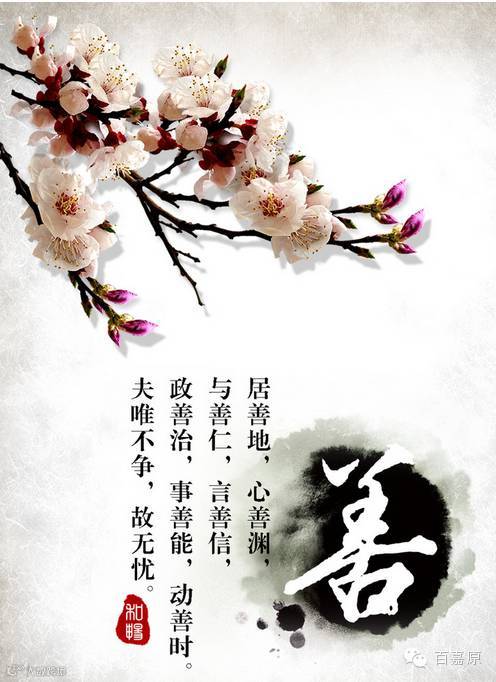 居善地，心善渊，
与善仁，言善信，
政善治，事善能，动善时。
夫唯不争，故无忧。
善
百嘉原